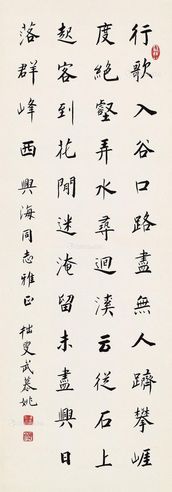 行歌入谷口路盡無人躋攀崖
度絕壑弄水尋迴溪云從石上
起客到花間迷淹留未盡興日
落群峰西興海同志雅正拙叟武慕姚